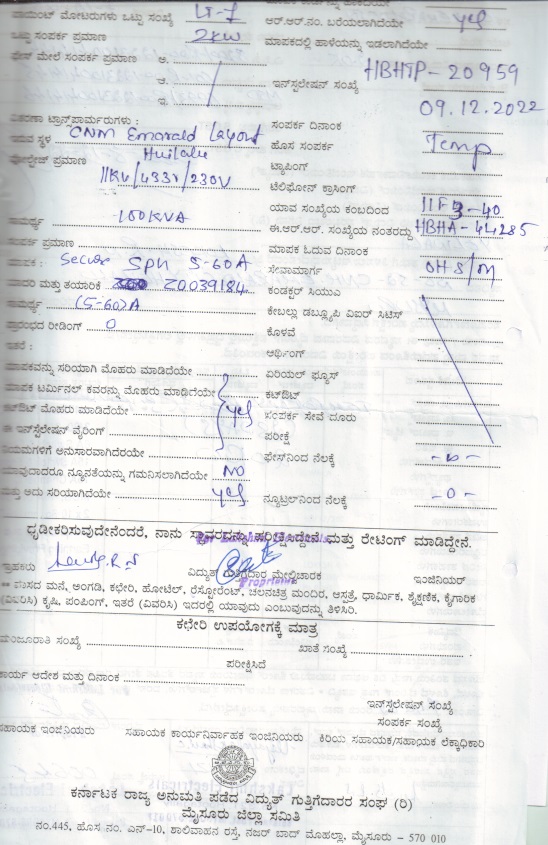 ಪಾಯಿಂಟ್ ಮೋಟರುಗಳು ಒಟ್ಟು ಸಂಖ್ಯೆ LT-7
ಆರ್.ಆರ್.ನಂ. ಬರೆಯಲಾಗಿದೆಯೇ yes
ಒಟ್ಟು ಸಂಪರ್ಕ ಪ್ರಮಾಣ 2KW
ಮಾಪಕದಲ್ಲಿ ಹಾಳೆಯನ್ನು ಇಡಲಾಗಿದೆಯೇ
ಫೇಸ್ ಮೇಲೆ ಸಂಪರ್ಕ ಪ್ರಮಾಣ ಆ.
ಇನ್‌ಸ್ಟಲೇಷನ್ ಸಂಖ್ಯೆ HBHTP-20959
ಇ.
09.12.2022
ವಿತರಣಾ ಟ್ರಾನ್ಸ್‌ಫಾರ್ಮರುಗಳು :
ಸಂಪರ್ಕ ದಿನಾಂಕ
ಇರುವ ಸ್ಥಳ CNM Emerald Layout
Huilalu
ಹೊಸ ಸಂಪರ್ಕ Temp
ವೋಲ್ಟೇಜ್ ಪ್ರಮಾಣ 11KV/433V/230V
ಟ್ಯಾಪಿಂಗ್
ಟೆಲಿಫೋನ್ ಕ್ರಾಸಿಂಗ್
ಯಾವ ಸಂಖ್ಯೆಯ ಕಂಬದಿಂದ
ಸಾಮರ್ಥ್ಯ -100KVA
ಈ.ಆರ್.ಆರ್. ಸಂಖ್ಯೆಯ ನಂತರದ್ದು HBHA-44285
ಸಂಪರ್ಕ ಪ್ರಮಾಣ
ಮಾಪಕ ಓದುವ ದಿನಾಂಕ
ಮಾಪಕ : Secure SPH 5-60A
ಸೇವಾಮಾರ್ಗ OHS/M
ಮಾದರಿ ಮತ್ತು ತಯಾರಿಕೆ Z0039184
ಕಂಡಕ್ಟರ್ ಸಿಯುಎ
ಸಾಮರ್ಥ್ಯ (5-60)A
ಕೇಬಲ್ಲು ಡಬ್ಲ್ಯೂಪಿ ವಿಐಆರ್ ಸಿಟಿಸ್
ಪ್ರಾರಂಭದ ರೀಡಿಂಗ್ 0
ಕೊಳವೆ
ಇತರೆ :
ಅರ್ಥಿಂಗ್
ಮಾಪಕವನ್ನು ಸರಿಯಾಗಿ ಮೊಹರು ಮಾಡಿದೆಯೇ
ಏರಿಯಲ್ ಫ್ಯೂಸ್
ಮಾಪಕ ಟರ್ಮಿನಲ್ ಕವರನ್ನು ಮೊಹರು ಮಾಡಿದೆಯೇ
ಕಟ್‌ಔಟ್
ಕಟ್‌ಔಟ್ ಮೊಹರು ಮಾಡಿದೆಯೇ yes
ಸಂಪರ್ಕ ಸೇವೆ ದೂರು
ಈ ಇನ್‌ಸ್ಟಲೇಷನ್ ವೈರಿಂಗ್
ಪರೀಕ್ಷೆ
ನಿಯಮಗಳಿಗೆ ಅನುಸಾರವಾಗಿದೆರಯೇ
ಫೇಸ್‌ನಿಂದ ನೆಲಕ್ಕೆ
ಯಾವುದಾದರೂ ನ್ಯೂನತೆಯನ್ನು ಗಮನಿಸಲಾಗಿದೆಯೇ NO
ಮತ್ತು ಅದು ಸರಿಯಾಗಿದೆಯೇ yes
ನ್ಯೂಟ್ರಲ್‌ನಿಂದ ನೆಲಕ್ಕೆ -0-
ಧೃಡೀಕರಿಸುವುದೇನೆಂದರೆ, ನಾನು ಸ್ಥಾವರವನ್ನು ಪರೀಕ್ಷಿಸಿದ್ದೇನೆ ಮತ್ತು ರೇಟಿಂಗ್ ಮಾಡಿದ್ದೇನೆ.
ಗ್ರಾಹಕರು
ವಿದ್ಯುತ್ ಗುತ್ತಿಗೆದಾರ ಮೇಲ್ವಿಚಾರಕ
ಇಂಜಿನಿಯರ್
Proprietor
** ವಾಸದ ಮನೆ, ಅಂಗಡಿ, ಕಛೇರಿ, ಹೋಟೆಲ್, ರೆಸ್ಟೋರೆಂಟ್, ಚಲನಚಿತ್ರ ಮಂದಿರ, ಆಸ್ಪತ್ರೆ, ಧಾರ್ಮಿಕ, ಶೈಕ್ಷಣಿಕ, ಕೈಗಾರಿಕೆ
(ವಿವರಿಸಿ) ಕೃಷಿ, ಪಂಪಿಂಗ್, ಇತರೆ (ವಿವರಿಸಿ) ಇದರಲ್ಲಿ ಯಾವುದು ಎಂಬುವುದನ್ನು ತಿಳಿಸಿರಿ.
ಕಛೇರಿ ಉಪಯೋಗಕ್ಕೆ ಮಾತ್ರ
ಮಂಜೂರಾತಿ ಸಂಖ್ಯೆ
ಖಾತೆ ಸಂಖ್ಯೆ
ಪರೀಕ್ಷಿಸಿದೆ
ಕಾರ್ಯ ಆದೇಶ ಮತ್ತು ದಿನಾಂಕ
ಇನ್‌ಸ್ಟಲೇಷನ್ ಸಂಖ್ಯೆ
ಸಂಪರ್ಕ ಸಂಖ್ಯೆ
ಸಹಾಯಕ ಇಂಜಿನಿಯರು
ಸಹಾಯಕ ಕಾರ್ಯನಿರ್ವಾಹಕ ಇಂಜಿನಿಯರು
ಕಿರಿಯ ಸಹಾಯಕ/ಸಹಾಯಕ ಲೆಕ್ಕಾಧಿಕಾರಿ
ಕರ್ನಾಟಕ ರಾಜ್ಯ ಅನುಮತಿ ಪಡೆದ ವಿದ್ಯುತ್ ಗುತ್ತಿಗೆದಾರರ ಸಂಘ (ರಿ)
ಮೈಸೂರು ಜಿಲ್ಲಾ ಸಮಿತಿ
ನಂ.445, ಹೊಸ ನಂ. ಎನ್-10, ಶಾಲಿವಾಹನ ರಸ್ತೆ, ನಜರ್ ಬಾದ್ ಮೊಹಲ್ಲಾ, ಮೈಸೂರು - 570 010